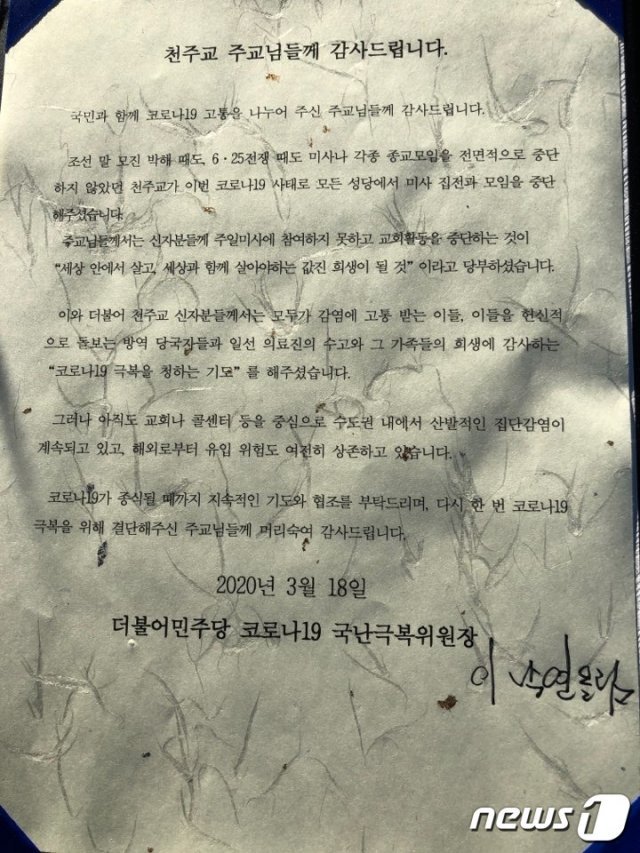 천주교 주교님들께 감사드립니다.
국민과 함께 코로나19 고통을 나누어 주신 주교님들께 감사드립니다.
조선 말 모진 박해 때도, 6·25전쟁 때도 미사나 각종 종교모임을 전면적으로 중단
하지 않았던 천주교가 이번 코로나19 사태로 모든 성당에서 미사 집전과 모임을 중단
해주셨습니다.
주교님들께서는 신자분들께 주일미사에 참여하지 못하고 교회활동을 중단하는 것이
“세상 안에서 살고, 세상과 함께 살아야하는 값진 희생이 될 것” 이라고 당부하셨습니다.
이와 더불어 천주교 신자분들께서는 모두가 감염에 고통 받는 이들, 이들을 헌신적
으로 돌보는 방역 당국자들과 일선 의료진의 수고와 그 가족들의 희생에 감사하는
“코로나19 극복을 청하는 기도” 를 해주셨습니다.
그러나 아직도 교회나 콜센터 등을 중심으로 수도권 내에서 산발적인 집단감염이
계속되고 있고, 해외로부터 유입 위험도 여전히 상존하고 있습니다.
코로나19가 종식될 때까지 지속적인 기도와 협조를 부탁드리며, 다시 한 번 코로나19
극복을 위해 결단해주신 주교님들께 머리숙여 감사드립니다.
2020년 3월 18일
더불어민주당 코로나19 국난극복위원장
이낙연올림
news1